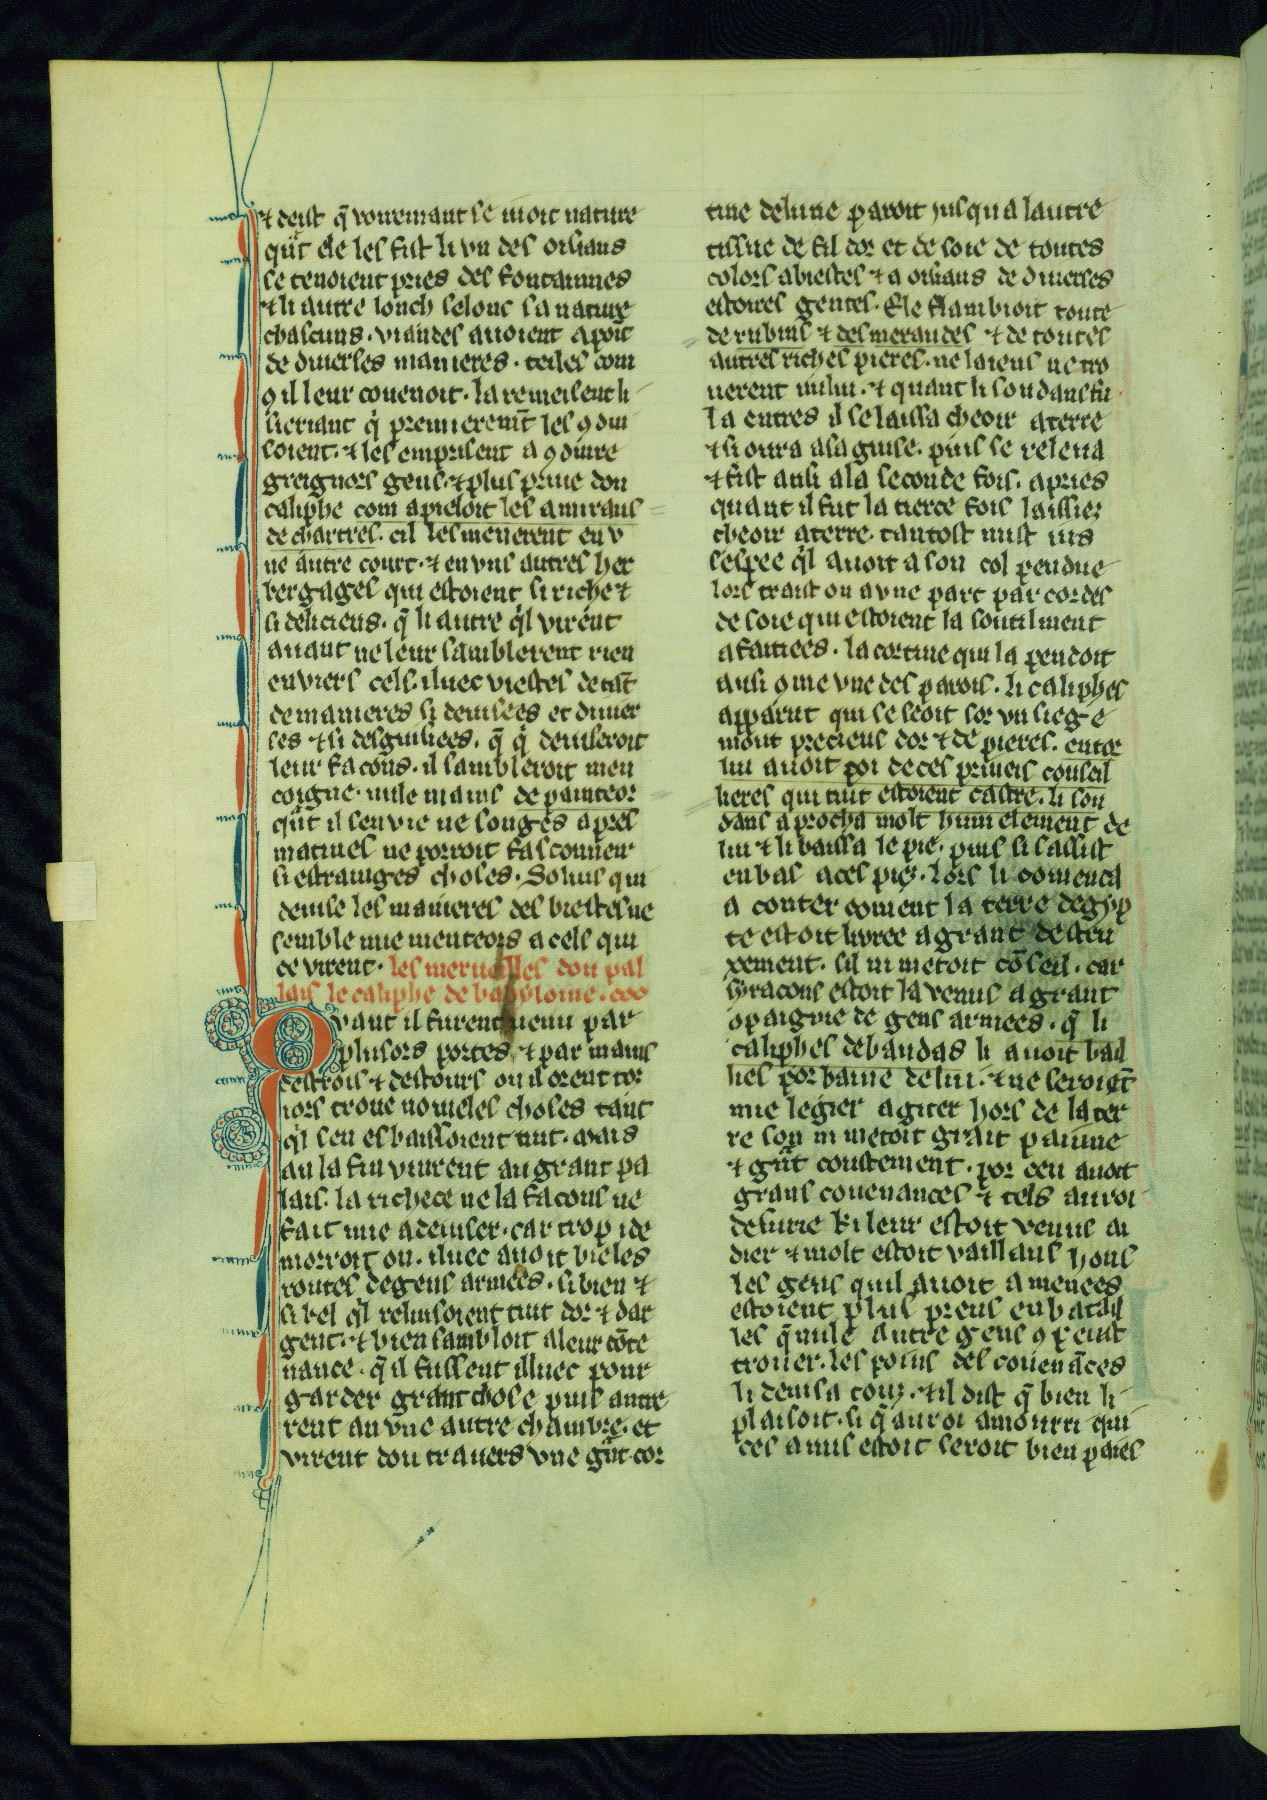 ⁊ deist q̃ voiremant se moit nature
qũt ele les fist li vn des oisians
se tenoient pries des fontainnes
⁊ li autre lonch selonc sa nature
chascuns. viandes auoient a poit
de diuerses manieres. teiles com
9 il leur couenoit. la remeisent li
sieriant q̓ premieremt̃ les 9 dui
soient. ⁊ les emprisent a 9 duire
greignors gens. ⁊ plus priue dou
caliphe com apieloit les amirans
de chartres. cil les menerent en v
ne autre court. ⁊ en vns autres her
bergages qui estoient si riche ⁊
si delicieus. q̃ li autre q̓l virẽt
auant ne leur samblerent rien
enviers cels. iluec viestes de tãt
de manieres si deuisees et diuier
ses ⁊ si desguisiees. q̃ q̓ deuiseroit
leur facons. il sambleroit men
coigne. nule mains de painteor
qũt il senvie ne songes apres
matines ne porroit fasconner
si estranges choses. Solins qui
deuise les manieres des biestes ne
semble mie menteors a cels qui
ce virent. les merueilles dou pal
lais le caliphe de babyloine. ccc
Qvant il furent venu par
plusors portes ⁊ par mains
destrois ⁊ destours ou il orent tor
iors troue nouieles choses tant
q̓l sen esbaissoient tuit. mais
au la fin vinrent au grant pa
lais. la richece ne la facons ne
fait mie a deuiser. car trop i de
morroit on. iluec auoit bieles
routes de gens armees. si bien ⁊
si bel q̓l reluisoient tuit dor ⁊ dar
gent. ⁊ bien sambloit a leur cõte
nance. q̃ il fussent illuec pour
garder grant chose puis antre
rent an vne autre chambre. et
virent dou travers vne gñt cor
tine de lune paroit iusqu a lautre
tissue de fil dor et de soie de toutes
colors a biestes ⁊ a oisians de diuerses
estoires gentes. Ele flamboioit toute
de rubins ⁊ des meraudes ⁊ de toutes
autres riches pieres. ne laiens ne tro
uerent nului. ⁊ quant li soudans fu
la entres il se laissa cheoir a terre
⁊ si oura a sa guise. puis se releua
⁊ fist ausi a la seconde fois. apries
quant il fut la tierce fois laissiez
cheoir a terre. tantost mist ius
lespee q̓l auoit a son col pendue
lors traist on a vne part par cordes
de soie qui estoient la soutilment
afaitiees. la cortine qui la pendoit
ausi 9me vne des parois. li caliphes
apparut qui se seoit sor vn siege
mout precieus dor ⁊ de pieres. entor
lui auoit poi de ces priueis conseil
lieres qui tuit estoient castre. li sou
dans aprocha molt humelement de
lui ⁊ li baissa le pie. puis si sassist
en bas a ces piez. Lors li comenca
a conter coment la terre degyp
te estoit livree a grant destru
xement. sil ni metoit cõseil. car
syracons estoit la venus a grant
9paignie de gens armees. q̃ li
caliphes de baudas li auoit bail
lies por baine de lui. ⁊ ne seroiẽt
mie legier a giter hors de la ter
re son ni metoit grãt painne
⁊ gñt coustement. por ceu auoit
grans couenances ⁊ tels au roi
de surie ki leur estoit venus ai
dier ⁊ molt estoit vaillans hons
les gens quil auoit amenees
estoient plus preus en batail
les q̃ nule autre gens 9 peust
trouer. les poins des couenãces
li deuisa touz. ⁊ il dist q̃ bien li
plaisoit. si q̃ au roi amourri qui
ces amis estoit seroit bien paies